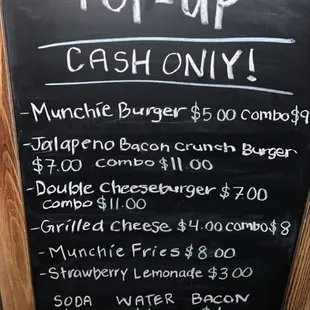 POP-UP
CASH ONLY!
- Munchie Burger $5.00 combo $9
- Jalapeno Bacon Crunch Burger
$7.00 combo $11.00
- Double Cheeseburger $7.00
combo $11.00
- Grilled Cheese $4.00 combo $8
- Munchie Fries $8.00
- Strawberry Lemonade $3.00
SODA WATER BACON